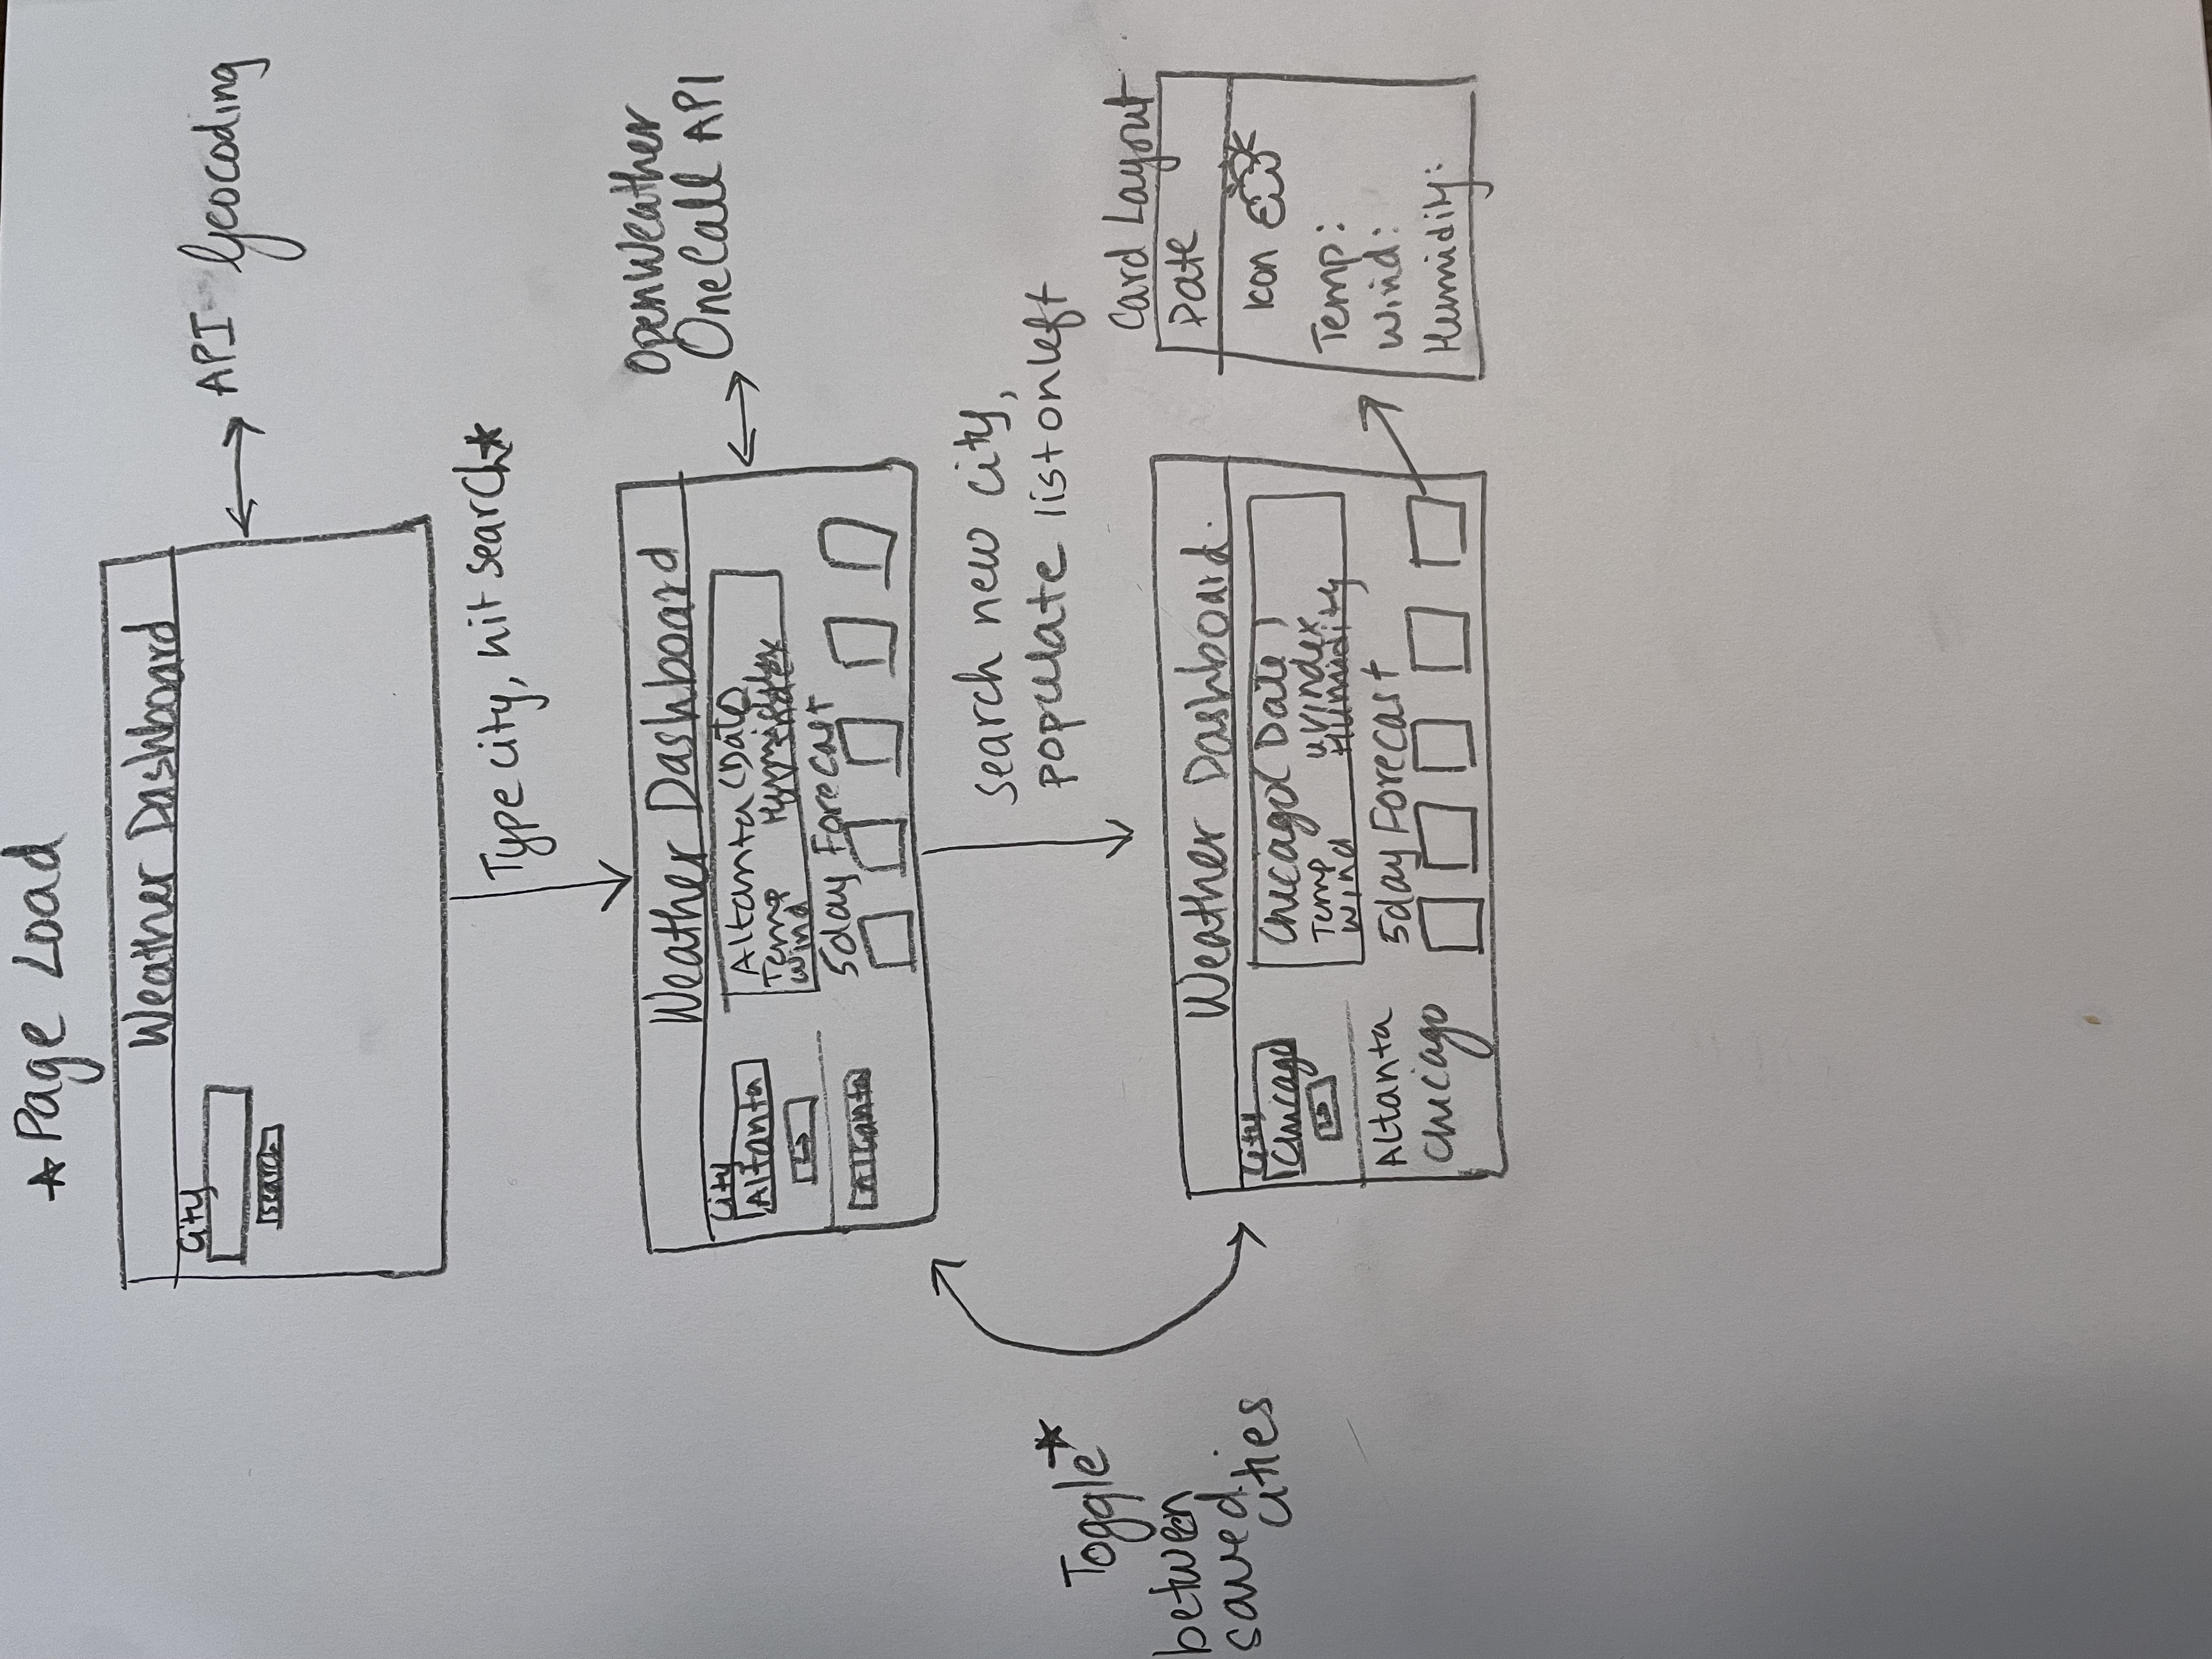 ★ Page Load
Weather Dashboard
City
Search
API Geocoding
Type city, hit search★
Weather Dashboard
City
Altanta
Altanta (Date)
Temp Humidity
Wind UV Index
5day Forecast
Altanta
OpenWeather
OneCall API
search new city,
populate list on left
Toggle★
between
saved
cities
Weather Dashboard.
City
Chicago
Chicago (Date)
Temp uvindex
Wind Humidity
Altanta
Chicago
5day Forecast
Card Layout
Date
Icon
Temp:
Wind:
Humidity: